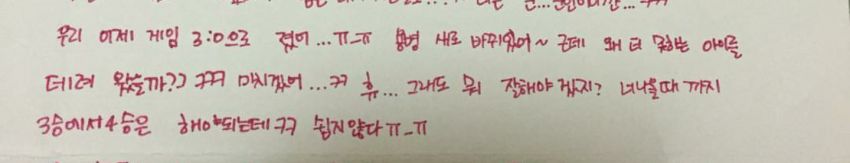 우리 어제 게임 3:0으로 졌어...ㅠ-ㅠ 용병 새로 바뀌었어~ 근데 왜 더 못하는 아이를
데려 왔을까?? ㅋㅋ 미치겠어...ㅋㅋ 휴... 그래도 뭐 잘해야 겠지? 너나올때 까지
3승에서4승은 해야되는데 ㅋㅋ 쉽지않다 ㅠ-ㅠ